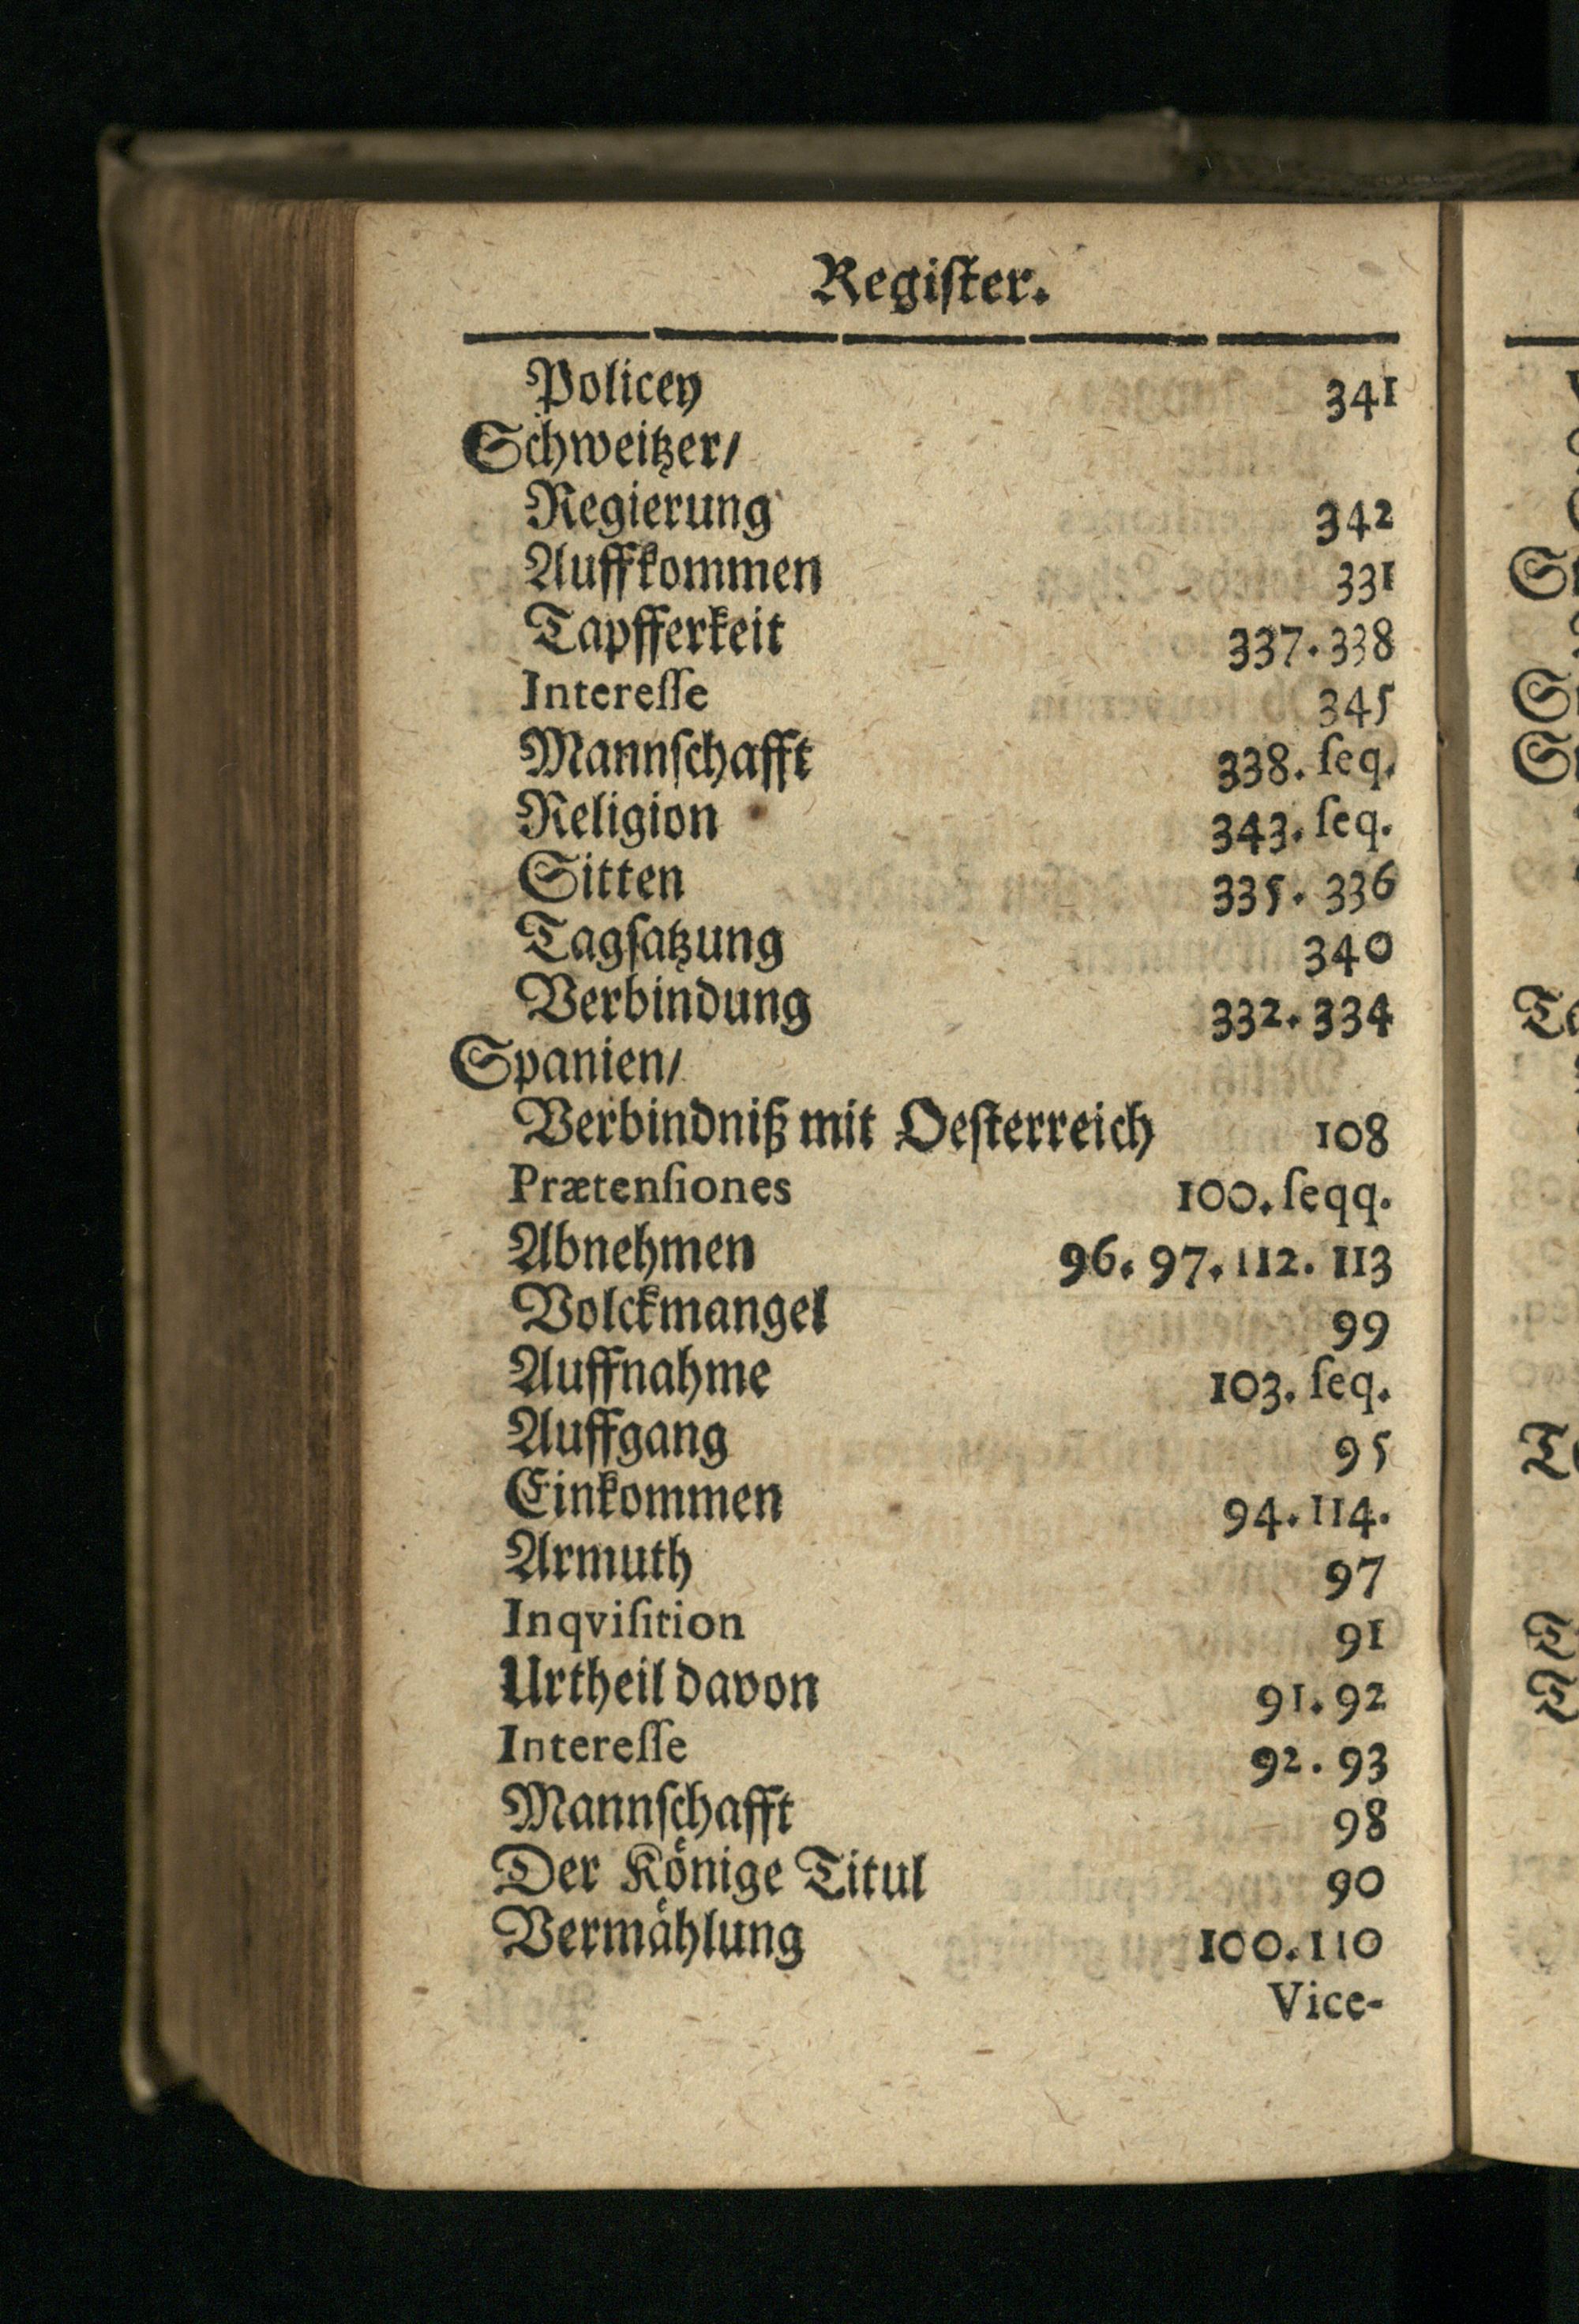 Regiſter.
Policey 341
Schweitzer/
Regierung 342
Auffkommen 331
Tapfferkeit 337. 338
Intereſſe 345
Mannſchafft 338. ſeq.
Religion 343. ſeq.
Sitten 335. 336
Tagſatzung 340
Verbindung 332. 334
Spanien/
Verbindniß mit Oeſterreich 108
Prætenſiones 100. ſeqq.
Abnehmen 96. 97. 112. 113
Volckmangel 99
Auffnahme 103. ſeq.
Auffgang 95
Einkommen 94. 114.
Armuth 97
Inqviſition 91
Urtheil davon 91. 92
Intereſſe 92. 93
Mannſchafft 98
Der Könige Titul 90
Vermählung 100. 110
Vice-